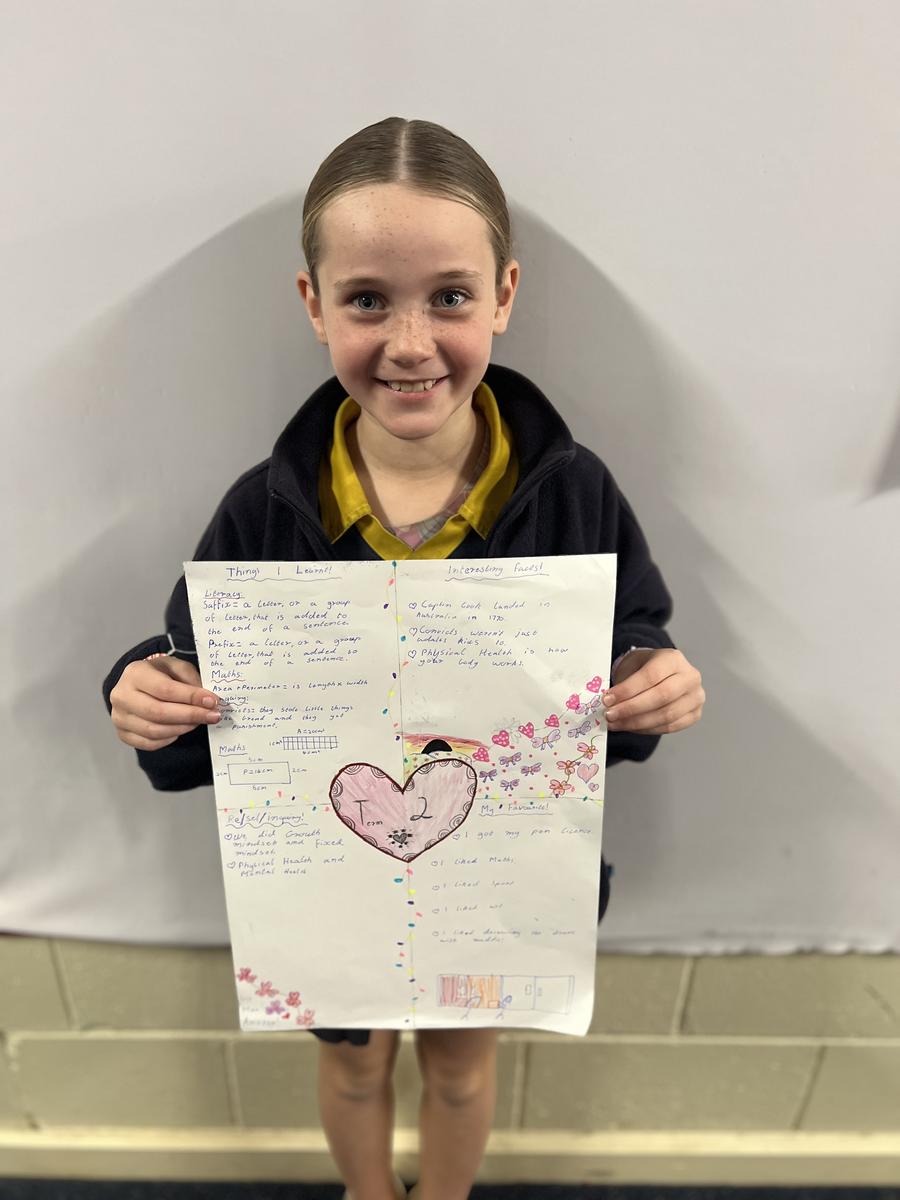 Things I Learnt!
Literacy:
Suffix = a letter, or a group
of letter, that is added to
the end of a sentence.
Prefix = a letter, or a group
of letter, that is added to
the end of a sentence.
Maths:
Area + Perimeter = is Length x width
Convicts = they stole little things
bread and they got
a punishment.
Maths
A=20cm²
1cm
5cm
2cm
P=14cm
2cm
5cm
Interesting facts!
Captin Cook landed in
Australia in 1770.
Convicts weren't just
adults Kids to.
Physical Health is how
your body works.
Term 2
Re/sel/Inquiry!
We did Growth
mindset and fixed
mindset.
Physical Health and
Mental Health
My Favourite!
I got my pen licence.
I liked Maths
I liked Sport
I liked
I liked
with maths.